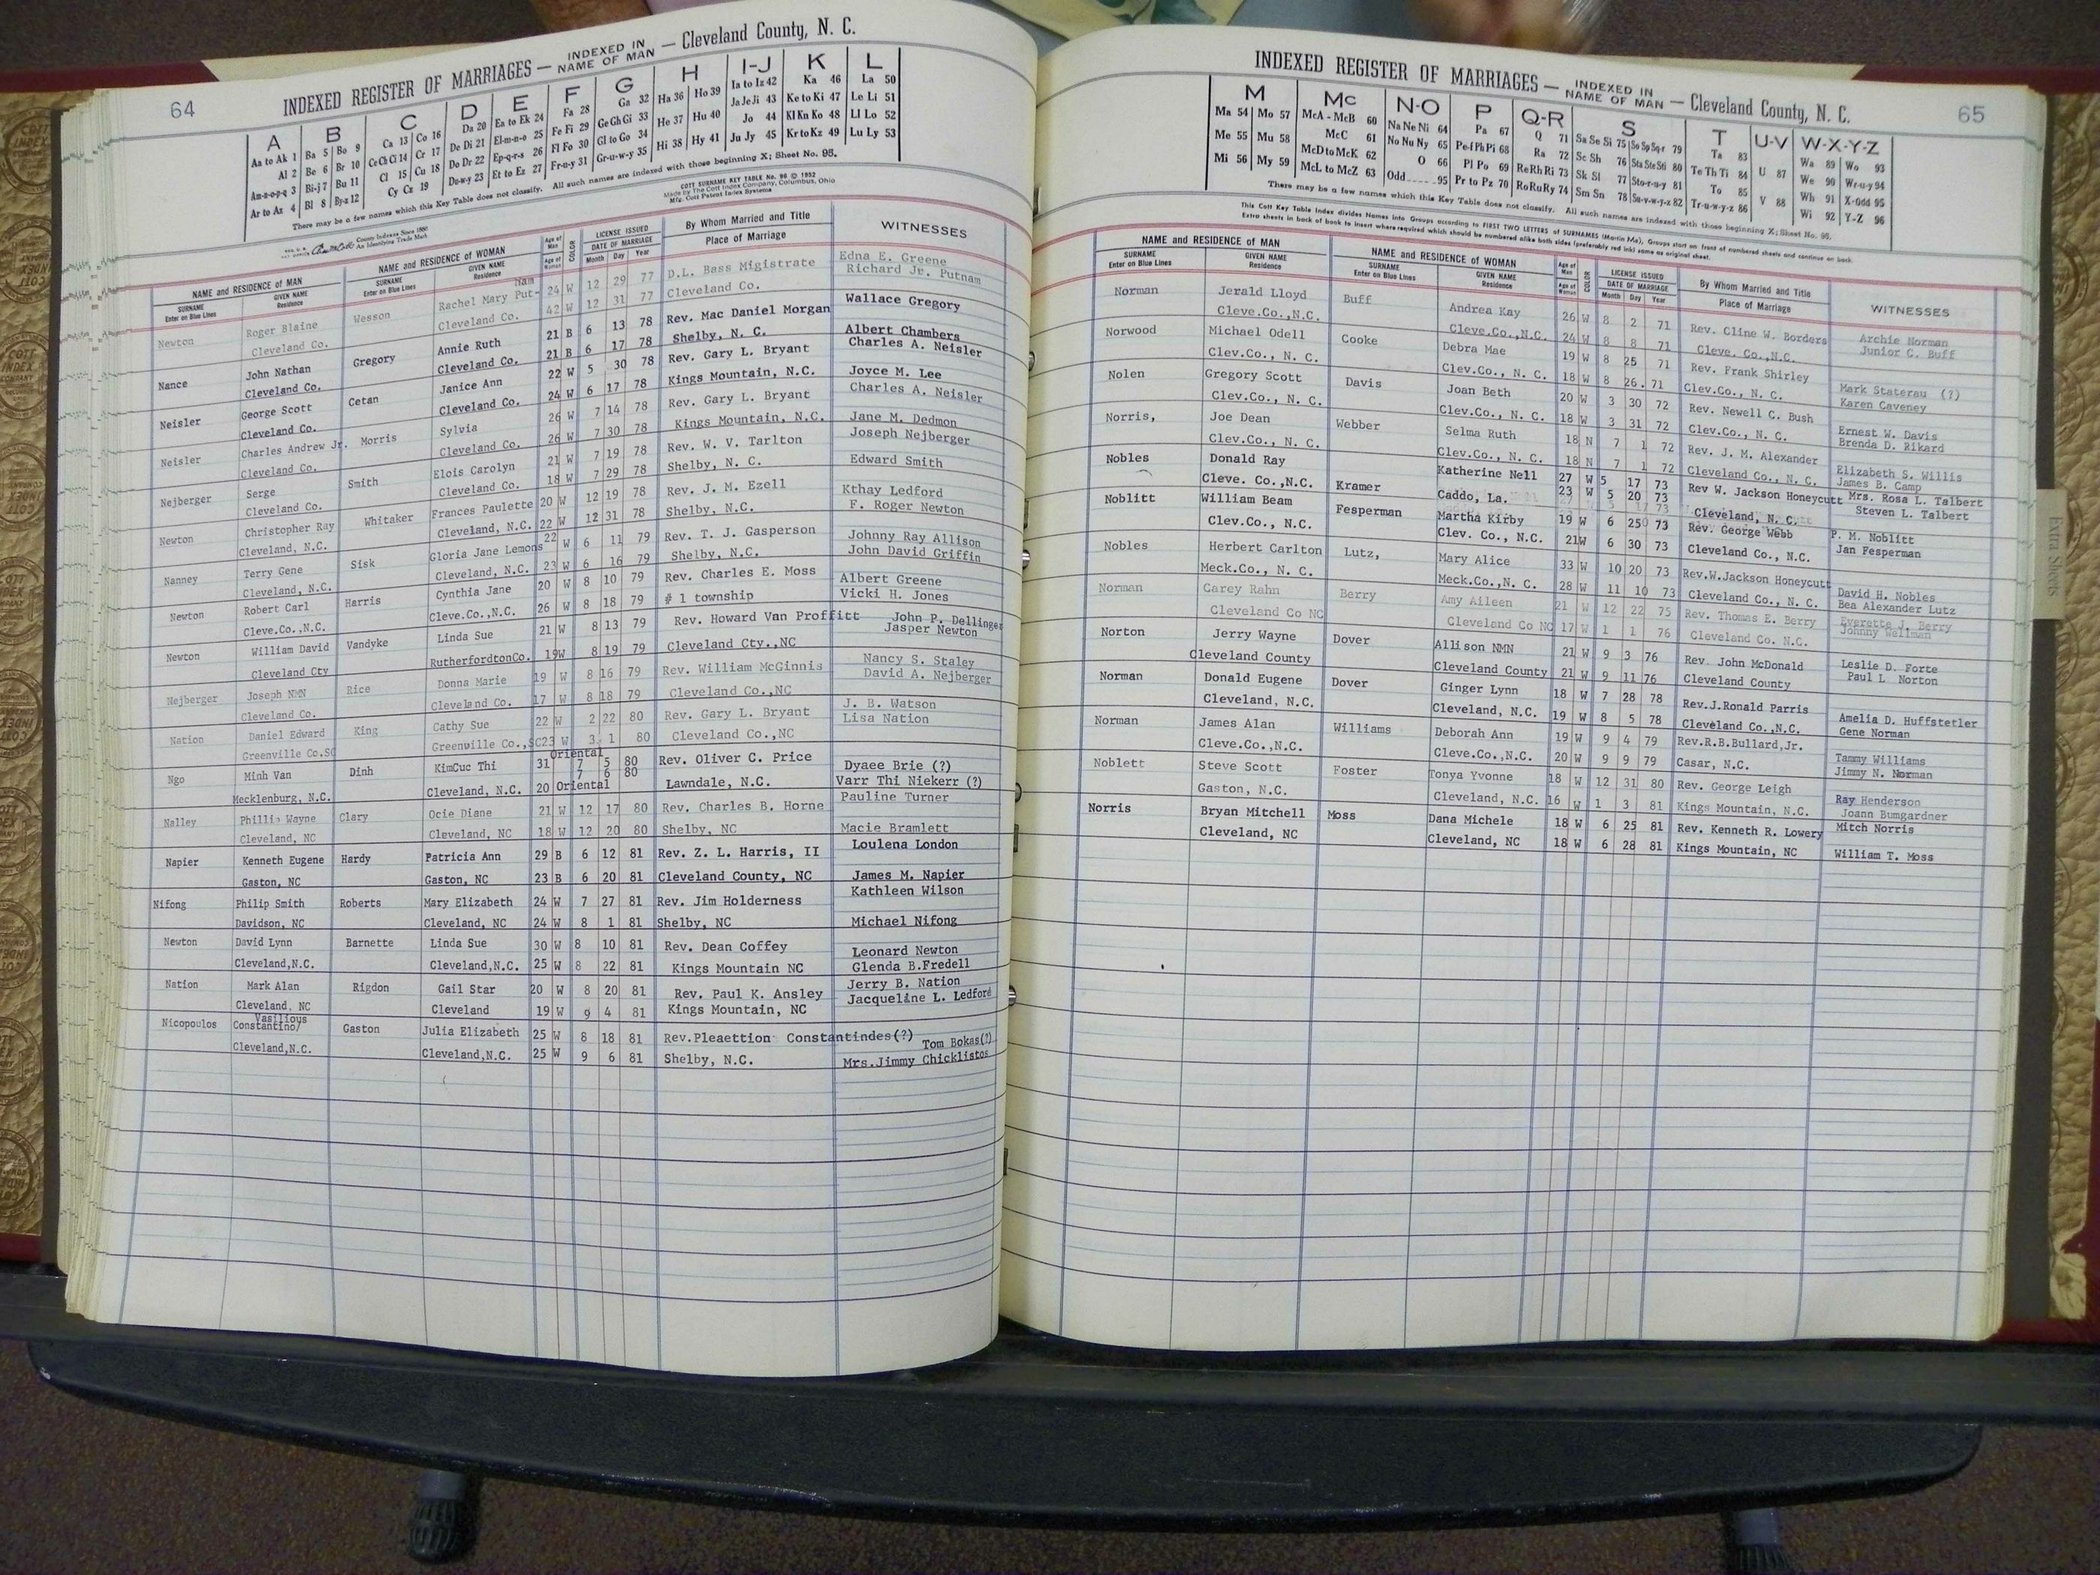 64
INDEXED REGISTER OF MARRIAGES — INDEXED IN NAME OF MAN — Cleveland County, N. C.
A B C D E F G H I-J K L
Aa to Ak 1 Ba 5 Bo 9 Ca 13 Co 16 Da 20 Ea to Ek 24 Fa 28 Ga 32 Ha 36 Ho 39 Ia to Iz 42 Ka 46 La 50
Al 2 Be 6 Br 10 Ce Ch Ci 14 Cr 17 De Di 21 El-m-n-o 25 Fe Fi 29 Ge Gh Gi 33 He 37 Hu 40 Ja Je Ji 43 Ke to Ki 47 Le Li 51
Am-n-o-p-q 3 Bi-j 7 Bu 11 Cl 15 Cu 18 Do Dr 22 Ep-q-r-s 26 Fl Fo 30 Gl to Go 34 Hi 38 Hy 41 Jo 44 Kl Kn Ko 48 Ll Lo 52
Ar to Az 4 Bl 8 By-z 12 Cy Cz 19 Du-w-y 23 Et to Ez 27 Fr-u-y 31 Gr-u-w-y 35 Ju Jy 45 Kr to Kz 49 Lu Ly 53
There may be a few names which this Key Table does not classify. All such names are indexed with those beginning X; Sheet No. 95.
COTT SURNAME KEY TABLE No. 96 © 1952
Made by The Cott Index Company, Columbus, Ohio
Mfg. Cott Patent Index Systems
County Indexes Since 1888
An Identifying Trade Mark
NAME and RESIDENCE OF MAN NAME and RESIDENCE OF WOMAN Age of Man Age of Woman COLOR LICENSE ISSUED DATE OF MARRIAGE By Whom Married and Title Place of Marriage WITNESSES
SURNAME Enter on Blue Lines GIVEN NAME Residence SURNAME Enter on Blue Lines GIVEN NAME Residence Month Day Year
Newton Roger Blaine Wesson Rachel Mary Put-nam 24 W 12 29 77 D.L. Bass Migistrate Edna E. Greene
Cleveland Co. Cleveland Co. 42 W 12 31 77 Cleveland Co. Richard Jr. Putnam
Nance John Nathan Gregory Annie Ruth 21 B 6 13 78 Rev. Mac Daniel Morgan Wallace Gregory
Cleveland Co. Cleveland Co. 21 B 6 17 78 Shelby, N. C. Albert Chambers
Neisler George Scott Cetan Janice Ann 22 W 5 30 78 Rev. Gary L. Bryant Charles A. Neisler
Cleveland Co. Cleveland Co. 24 W 6 17 78 Kings Mountain, N.C. Joyce M. Lee
Neisler Charles Andrew Jr. Morris Sylvia 26 W 7 14 78 Rev. Gary L. Bryant Charles A. Neisler
Cleveland Co. Cleveland Co. 26 W 7 30 78 Kings Mountain, N.C. Jane M. Dedmon
Nejberger Serge Smith Elois Carolyn 21 W 7 19 78 Rev. W. V. Tarlton Joseph Nejberger
Cleveland Co. Cleveland Co. 18 W 7 29 78 Shelby, N. C. Edward Smith
Newton Christopher Ray Whitaker Frances Paulette 20 W 12 19 78 Rev. J. M. Ezell Kthay Ledford
Cleveland, N.C. Cleveland, N.C. 22 W 12 31 78 Shelby, N.C. F. Roger Newton
Nanney Terry Gene Sisk Gloria Jane Lemons 22 W 6 11 79 Rev. T. J. Gasperson Johnny Ray Allison
Cleveland, N.C. Cleveland, N.C. 23 W 6 16 79 Shelby, N.C. John David Griffin
Newton Robert Carl Harris Cynthia Jane 20 W 8 10 79 Rev. Charles E. Moss Albert Greene
Cleve.Co.,N.C. Cleve.Co.,N.C. 26 W 8 18 79 # 1 township Vicki H. Jones
Newton William David Vandyke Linda Sue 21 W 8 13 79 Rev. Howard Van Proffitt John P. Dellinger
Cleveland Cty RutherfordtonCo. 19W 8 19 79 Cleveland Cty.,NC Jasper Newton
Nejberger Joseph NMN Rice Donna Marie 19 W 8 16 79 Rev. William McGinnis Nancy S. Staley
Cleveland Co. Cleveland Co. 17 W 8 18 79 Cleveland Co.,NC David A. Nejberger
Nation Daniel Edward King Cathy Sue 22 W 2 22 80 Rev. Gary L. Bryant J. B. Watson
Greenville Co.SC Greenville Co.,SC 23 W 3 1 80 Cleveland Co.,NC Lisa Nation
Ngo Minh Van Dinh KimCuc Thi 31 Oriental 7 5 80 Rev. Oliver C. Price Dyaee Brie (?)
Mecklenburg, N.C. Cleveland, N.C. 20 Oriental 7 6 80 Lawndale, N.C. Varr Thi Niekerr (?)
Nalley Phillip Wayne Clary Ocie Diane 21 W 12 17 80 Rev. Charles B. Horne Pauline Turner
Cleveland, NC Cleveland, NC 18 W 12 20 80 Shelby, NC Macie Bramlett
Napier Kenneth Eugene Hardy Patricia Ann 29 B 6 12 81 Rev. Z. L. Harris, II Loulena London
Gaston, NC Gaston, NC 23 B 6 20 81 Cleveland County, NC James M. Napier
Nifong Philip Smith Roberts Mary Elizabeth 24 W 7 27 81 Rev. Jim Holderness Kathleen Wilson
Davidson, NC Cleveland, NC 24 W 8 1 81 Shelby, NC Michael Nifong
Newton David Lynn Barnette Linda Sue 30 W 8 10 81 Rev. Dean Coffey Leonard Newton
Cleveland,N.C. Cleveland,N.C. 25 W 8 22 81 Kings Mountain NC Glenda B.Fredell
Nation Mark Alan Rigdon Gail Star 20 W 8 20 81 Rev. Paul K. Ansley Jerry B. Nation
Cleveland, NC Cleveland 19 W 9 4 81 Kings Mountain, NC Jacqueline L. Ledford
Nicopoulos Constantino/ Vasilious Gaston Julia Elizabeth 25 W 8 18 81 Rev.Pleaettion Constantindes(?) Tom Bokas(?)
Cleveland,N.C. Cleveland,N.C. 25 W 9 6 81 Shelby, N.C. Mrs.Jimmy Chicklistos
65
INDEXED REGISTER OF MARRIAGES — INDEXED IN NAME OF MAN — Cleveland County, N. C.
M Mc N-O P Q-R S T U-V W-X-Y-Z
Ma 54 Mo 57 McA - McB 60 Na Ne Ni 64 Pa 67 Q 71 Sa Se Si 75 So Sp Sq-r 79 Ta 83 U 87 Wa 89 Wo 93
Me 55 Mu 58 McC 61 No Nu Ny 65 Pe-f Ph Pi 68 Ra 72 Sc Sh 76 Sta Ste Sti 80 Te Th Ti 84 V 88 We 90 Wr-u-y 94
Mi 56 My 59 McD to McK 62 O 66 Pl Po 69 Re Rh Ri 73 Sk Sl 77 Sto-r-u-y 81 To 85 Wh 91 X-Odd 95
McL to McZ 63 Odd 95 Pr to Pz 70 Ro Ru Ry 74 Sm Sn 78 Su-v-w-y-z 82 Tr-u-w-y-z 86 Wi 92 Y-Z 96
There may be a few names which this Key Table does not classify. All such names are indexed with those beginning X; Sheet No. 95.
This Cott Key Table Index divides Names into Groups according to FIRST TWO LETTERS of SURNAMES (Martin Ma), Groups start on front of numbered sheets and continue on back.
Extra sheets in back of book to insert where required which should be numbered alike both sides (preferably red ink) same as original sheet.
NAME and RESIDENCE OF MAN NAME and RESIDENCE OF WOMAN Age of Man Age of Woman COLOR LICENSE ISSUED DATE OF MARRIAGE By Whom Married and Title Place of Marriage WITNESSES
SURNAME Enter on Blue Lines GIVEN NAME Residence SURNAME Enter on Blue Lines GIVEN NAME Residence Month Day Year
Norman Jerald Lloyd Buff Andrea Kay 26 W 8 2 71 Rev. Cline W. Borders Archie Norman
Cleve.Co.,N.C. Cleve.Co.,N.C. 24 W 8 8 71 Cleve. Co.,N.C. Junior C. Buff
Norwood Michael Odell Cooke Debra Mae 19 W 8 25 71 Rev. Frank Shirley Mark Staterau (?)
Clev.Co., N. C. Clev.Co., N. C. 18 W 8 26. 71 Clev.Co., N. C. Karen Caveney
Nolen Gregory Scott Davis Joan Beth 20 W 3 30 72 Rev. Newell C. Bush Ernest W. Davis
Clev.Co., N. C. Clev.Co., N. C. 18 W 3 31 72 Clev.Co., N. C. Brenda D. Rikard
Norris, Joe Dean Webber Selma Ruth 18 N 7 1 72 Rev. J. M. Alexander Elizabeth S. Willis
Clev.Co., N. C. Clev.Co., N. C. 18 N 7 1 72 Cleveland Co., N. C. James B. Camp
Nobles Donald Ray Kramer Katherine Nell 27 W 5 17 73 Rev W. Jackson Honeycutt Mrs. Rosa L. Talbert
Cleve. Co.,N.C. Caddo, La. 23 W 5 20 73 Cleveland, N. C. Steven L. Talbert
Noblitt William Beam Fesperman Martha Kirby 19 W 6 25 73 Rev. George Webb P. M. Noblitt
Clev.Co., N.C. Clev. Co., N.C. 21W 6 30 73 Cleveland Co., N.C. Jan Fesperman
Nobles Herbert Carlton Lutz, Mary Alice 33 W 10 20 73 Rev.W.Jackson Honeycutt David H. Nobles
Meck.Co., N. C. Meck.Co.,N. C. 28 W 11 10 73 Cleveland Co., N. C. Bea Alexander Lutz
Norman Carey Rahn Berry Amy Aileen 21 W 12 22 75 Rev. Thomas E. Berry Everette J. Berry
Cleveland Co NC Cleveland Co NC 17 W 1 1 76 Cleveland Co. N.C. Johnny Wellman
Norton Jerry Wayne Dover Allison NMN 21 W 9 3 76 Rev. John McDonald Leslie D. Forte
Cleveland County Cleveland County 21 W 9 11 76 Cleveland County Paul L Norton
Norman Donald Eugene Dover Ginger Lynn 18 W 7 28 78 Rev.J.Ronald Parris Amelia D. Huffstetler
Cleveland, N.C. Cleveland, N.C. 19 W 8 5 78 Cleveland Co.,N.C. Gene Norman
Norman James Alan Williams Deborah Ann 19 W 9 4 79 Rev.R.B.Bullard,Jr. Tammy Williams
Cleve.Co.,N.C. Cleve.Co.,N.C. 20 W 9 9 79 Casar, N.C. Jimmy N. Norman
Noblett Steve Scott Foster Tonya Yvonne 18 W 12 31 80 Rev. George Leigh Ray Henderson
Gaston, N.C. Cleveland, N.C. 16 W 1 3 81 Kings Mountain, N.C. Joann Bumgardner
Norris Bryan Mitchell Moss Dana Michele 18 W 6 25 81 Rev. Kenneth R. Lowery Mitch Norris
Cleveland, NC Cleveland, NC 18 W 6 28 81 Kings Mountain, NC William T. Moss
Extra Sheets